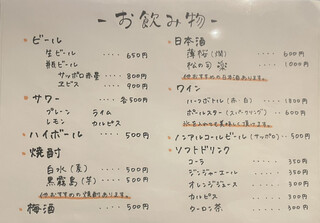 - お飲み物 -
・ビール
生ビール ···· 650円
瓶ビール
サッポロ赤星 ···· 800円
ヱビス ···· 900円
・サワー ···· 各500円
プレーン ライム
レモン カルピス
・ハイボール ···· 500円
・焼酎
白水（麦） ···· 500円
黒霧島（芋） ···· 500円
他おすすめの焼酎あります。
・梅酒 ···· 500円
・日本酒
薄桜（燗） ···· 600円
松の司 ···· 1000円
他おすすめの日本酒あります。
・ワイン
ハーフボトル（赤・白） ···· 1800円
ポールスター（スパークリング） ···· 600円
・ノンアルコールビール（サッポロ） ·· 500円
・ソフトドリンク
コーラ ···· 350円
ジンジャーエール ···· 350円
オレンジジュース ···· 350円
カルピス ···· 350円
ウーロン茶 ···· 300円